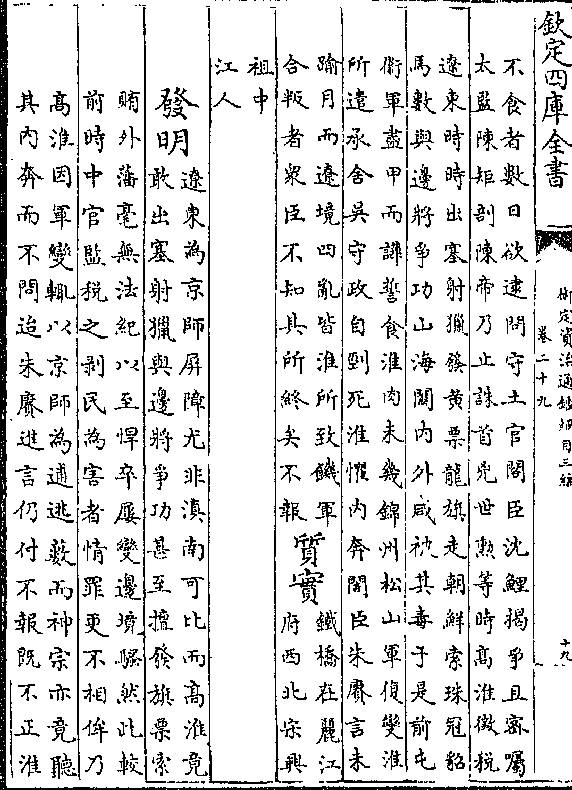 欽定四庫全書
御定資治通鑑綱目三編
卷二十九
十九
不食者數日欲逮問守土官閣臣沈鯉揭爭且密囑
太監陳矩剴陳帝乃止誅首兇世勲等時高淮徵稅
遼東時時出塞射獵發黃票龍旗走朝鮮索珠冠貂
馬數與邊將爭功山海關內外咸被其毒于是前屯
衛軍盡甲而譁誓食淮肉未幾錦州松山軍復變淮
所遣承舍吳守政自剄死淮懼內奔閣臣朱賡言未
踰月而遼境四亂皆淮所致饑軍
合叛者衆臣不知其所終矣不報
質實
鐵橋在麗江
府西北宋興
祖中
江人
發明
遼東為京師屏障尤非滇南可比而高淮竟
敢出塞射獵與邊將爭功甚至擅發旗票索
賄外藩毫無法紀以至悍卒屢變邊境騷然此較
前時中官監稅之剥民為害者情罪更不相侔乃
高淮因軍變輒以京師為逋逃藪而神宗亦竟聽
其內奔而不問迨朱賡進言仍付不報既不正淮